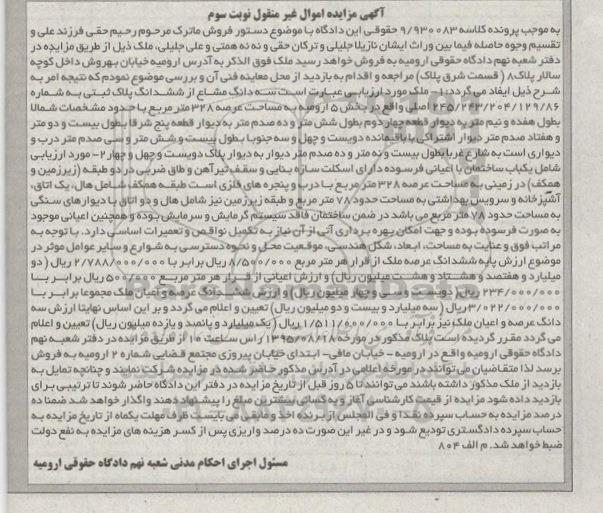 آگهی مزایده اموال غیر منقول نوبت سوم
به موجب پرونده کلاسه ۹/۹۳۰۰۸۳ حقوقی این دادگاه با موضوع دستور فروش ماترک مرحوم رحیم حقی فرزند علی و
تقسیم وجوه حاصله فیما بین وراث ایشان نازیلا جلیلی و ترکان حقی و ننه همتی و علی جلیلی، ملک ذیل از طریق مزایده در
دفتر شعبه نهم دادگاه حقوقی ارومیه به فروش خواهد رسید ملک فوق الذکر به آدرس ارومیه خیابان بهروش داخل کوچه
سالار پلاک ۸ ( قسمت شرق پلاک) مراجعه و اقدام به بازدید از محل معاینه فنی آن و بررسی موضوع نمودم که نتیجه امر به
شرح ذیل ایفاد می گردد: ۱- ملک مورد ارزیابی عبارت است سه دانگ مشاع از ششدانگ پلاک ثبتی به شماره
اصلی واقع در بخش ۵ ارومیه به مساحت عرصه ۳۲۸ متر مربع با حدود مشخصات شمالا
بطول هفده و نیم متر به دیوار قطعه چهار دوم بطول شش متر و ده صدم متر به دیوار قطعه پنج شرقا بطول بیست و دو متر
و هفتاد صدم متر دیوار اشتراکی با باقیمانده دویست و چهل و سه جنوبا بطول بیست و شش متر و سی صدم متر درب و
دیواری است به شارع غربا بطول بیست و نه متر و ده صدم متر دیوار به دیوار پلاک دویست و چهل و چهار ۲- مورد ارزیابی
شامل یکباب ساختمان با اعیانی فرسوده دارای اسکلت سازه بنایی و سقف تیرآهن و طاق ضربی در دو طبقه (زیرزمین و
همکف) در زمینی به مساحت عرصه ۳۲۸ متر مربع با درب و پنجره های فلزی است طبقه همکف شامل هال، یک اتاق،
آشپزخانه و سرویس بهداشتی به مساحت حدود ۷۸ متر مربع و طبقه زیرزمین نیز شامل هال و دو اتاق با دیوارهای سنگی
به مساحت حدود ۷۸ متر مربع می باشد در ضمن ساختمان فاقد سیستم گرمایش و سرمایش بوده و همچنین اعیانی موجود
به صورت فرسوده بوده و جهت امکان بهره برداری آتی از آن نیاز به تکمیل نواقص و تعمیرات اساسی دارد. با توجه به
مراتب فوق و عنایت به مساحت، ابعاد، شکل هندسی، موقعیت محل و نحوه دسترسی به شوارع و سایر عوامل موثر در
موضوع ارزش پایه ششدانگ عرصه ملک از قرار هر متر مربع ۸/۵۰۰/۰۰۰ ریال برابر با ۲/۷۸۸/۰۰۰/۰۰۰ ریال ( دو
میلیارد و هفتصد و هشتاد و هشت میلیون ریال) و ارزش اعیانی از قرار هر متر مربع ۵۰۰/۰۰۰ ریال برابر با
۲۳۴/۰۰۰/۰۰۰ ریال ( دویست و سی و چهار میلیون ریال) و ارزش ششدانگ عرصه و اعیان ملک مجموعا برابر با
۳/۰۲۲/۰۰۰/۰۰۰ ریال ( سه میلیارد و بیست و دو میلیون ریال) تعیین و اعلام می گردد و بر این اساس نهایتا ارزش سه
دانگ عرصه و اعیان ملک نیز برابر با ۱/۵۱۱/۰۰۰/۰۰۰ ریال ( یک میلیارد و پانصد و یازده میلیون ریال) تعیین و اعلام
می گردد مقرر گردیده است پلاک مذکور در مورخه ۱۳۹۵/۰۸/۱۸ راس ساعت ۱۰ از طریق مزایده در دفتر شعبه نهم
دادگاه حقوقی ارومیه واقع در ارومیه - خیابان مافی- ابتدای خیابان پیروزی مجتمع قضایی شماره ۲ ارومیه به فروش
برسد لذا متقاضیان می توانند در مورخه اعلامی در آدرس مذکور حاضر شده در مزایده شرکت نمایند و چنانچه تمایل به
بازدید از ملک مذکور داشته باشند می توانند تا ۵ روز قبل از تاریخ مزایده در دفتر این دادگاه حاضر شوند تا ترتیبی برای
بازدید داده شود مزایده از قیمت کارشناسی آغاز و به کسانی بیشترین مبلغ را پیشنهاد دهند واگذار خواهد شد ضمنا ده
درصد مزایده به حساب سپرده نقدا و فی المجلس از برنده اخذ و مابقی می بایست ظرف مهلت یکماه از تاریخ مزایده به
حساب سپرده دادگستری تودیع شود و در غیر این صورت ده درصد واریزی پس از کسر هزینه های مزایده به نفع دولت
ضبط خواهد شد. م الف ۸۰۴
مسئول اجرای احکام مدنی شعبه نهم دادگاه حقوقی ارومیه